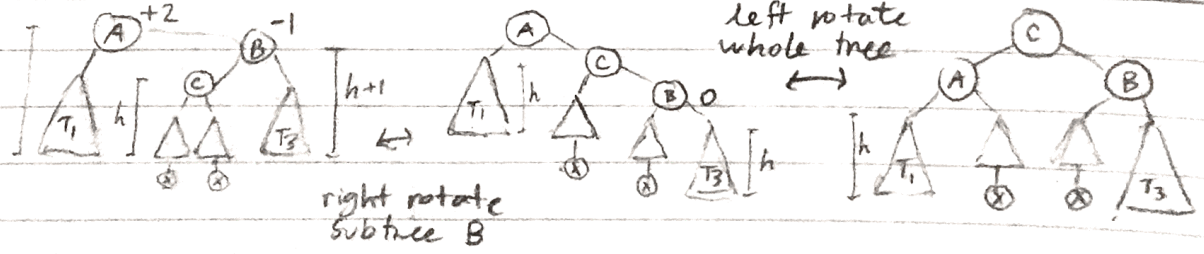 A +2
B -1
C
T1
h
T3
h+1
x x
↔
right rotate
subtree B
A
C
B 0
T1
h
T3
h
x
x
left rotate
whole tree
↔
C
A
B
h
T1
x
x
T3